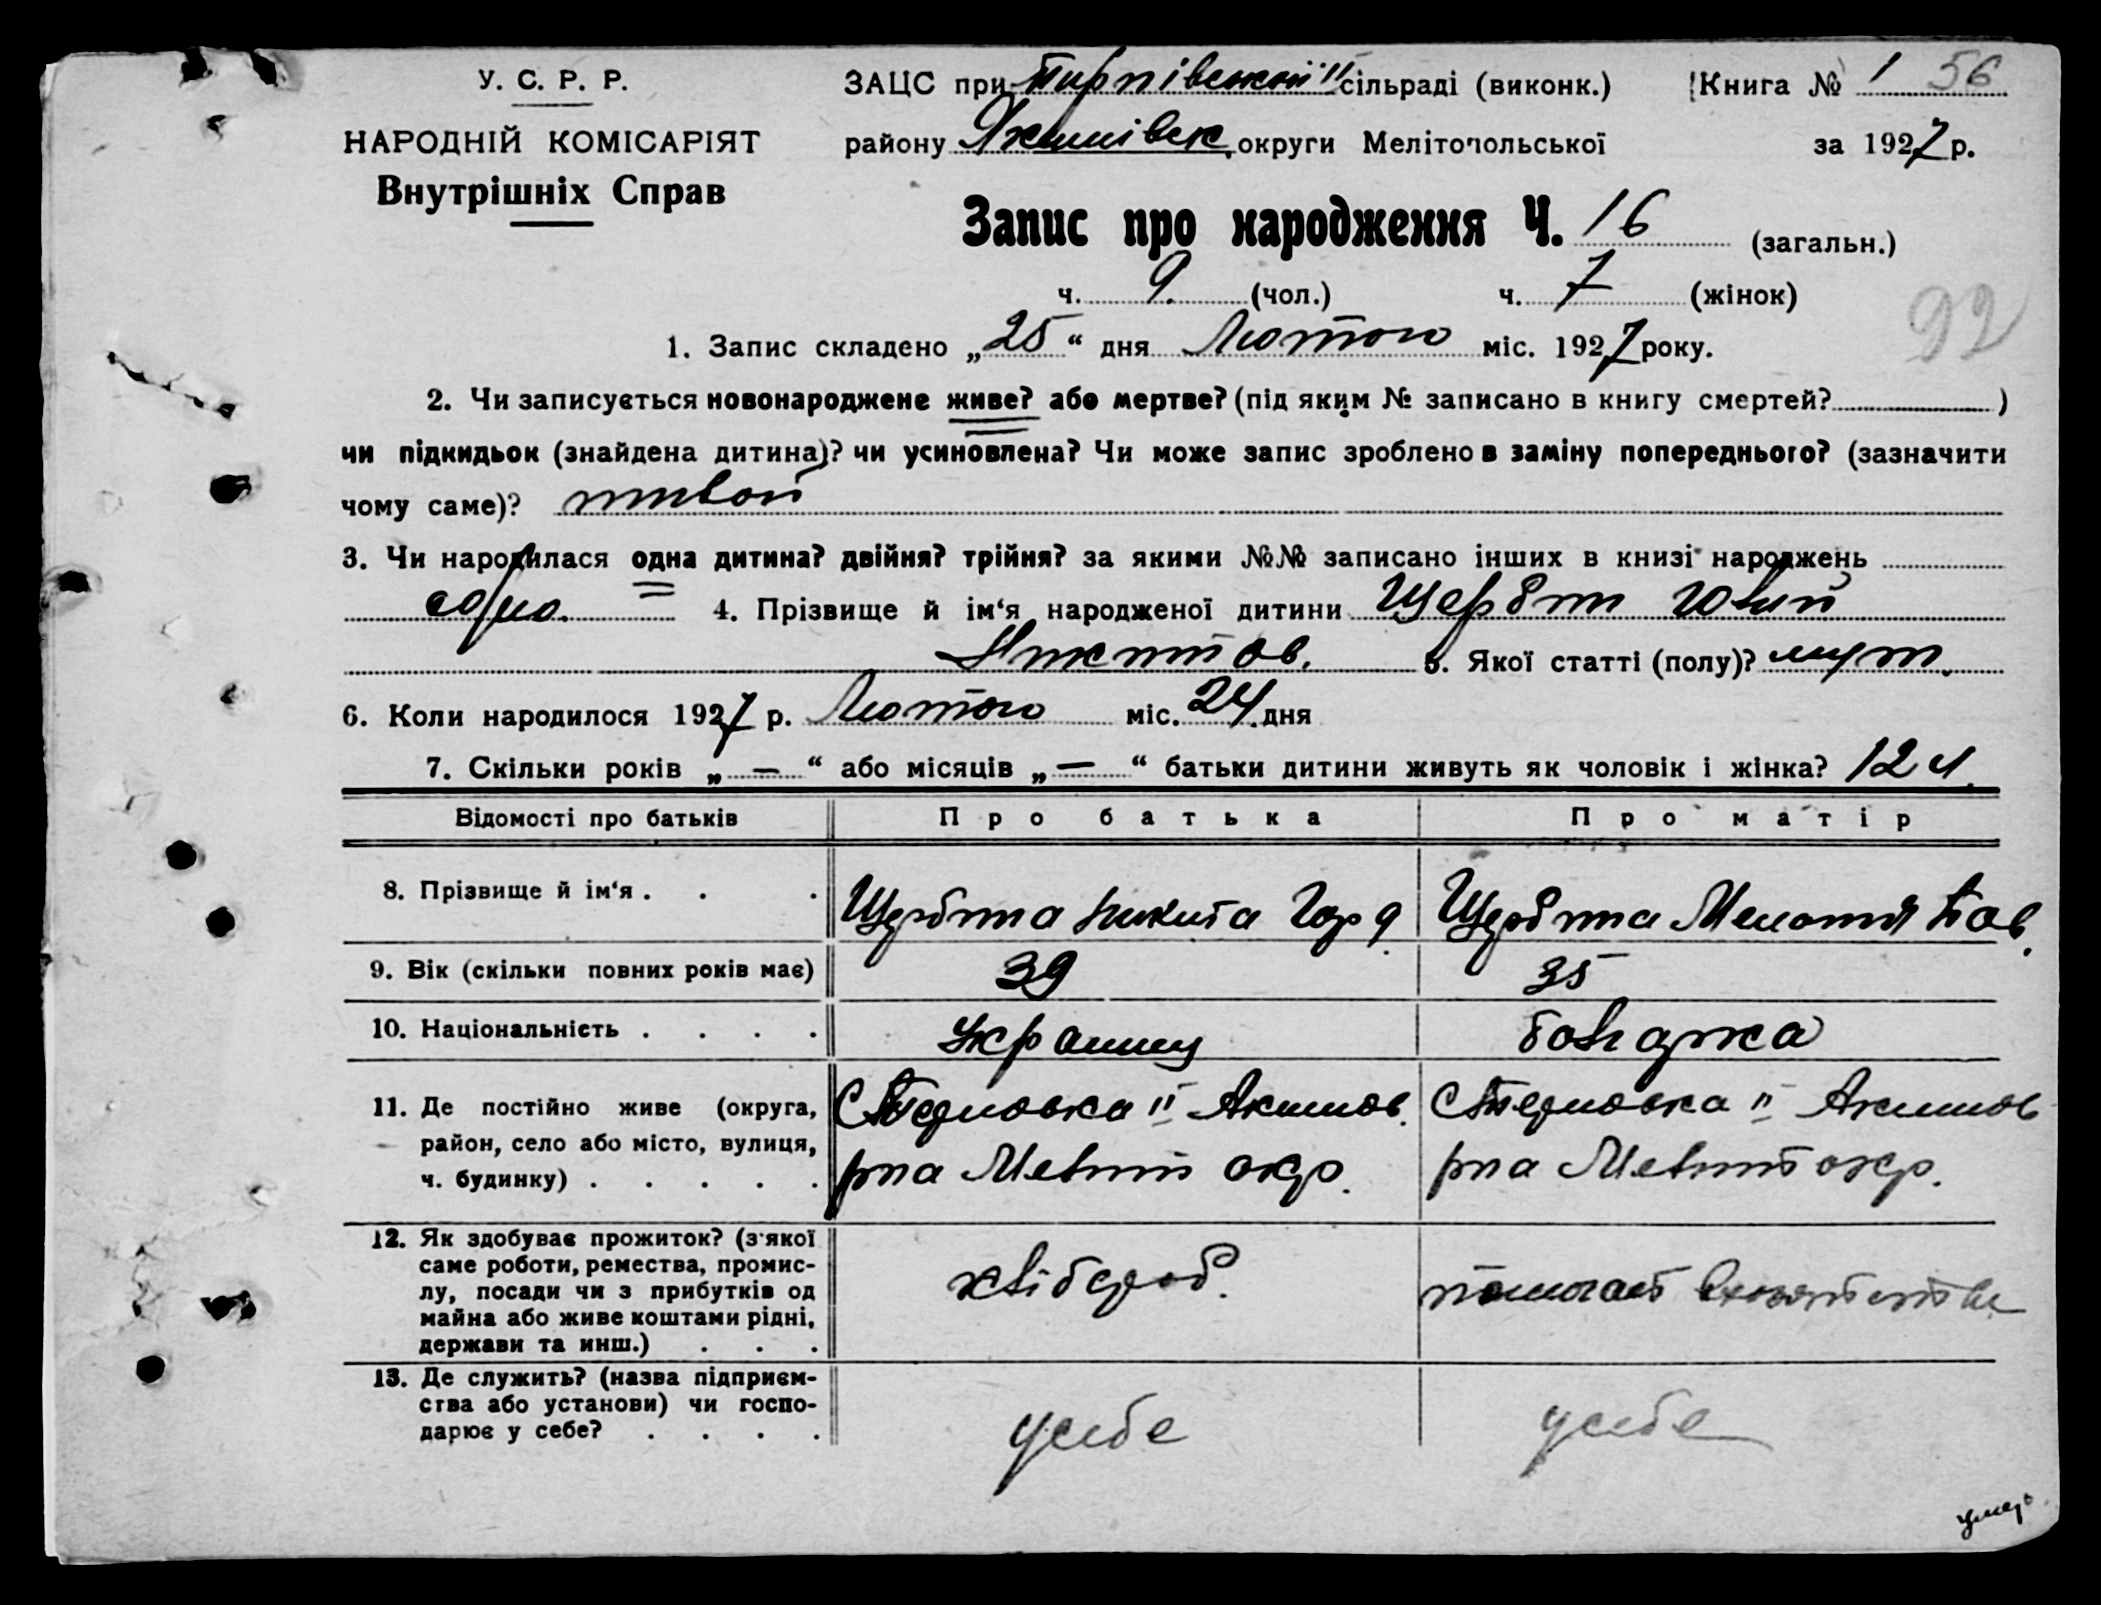 У. С. Р. Р.
НАРОДНІЙ КОМІСАРІЯТ
Внутрішніх Справ
ЗАЦС при сільраді (виконк.)
Книга № 1 56
району округи Мелітопольської
за 1927 р.
Запис про народження Ч. 16 (загальн.)
ч. 9 (чол.) ч. 7 (жінок)
92
1. Запис складено „25“ дня Лютого міс. 1927 року.
2. Чи записується новонароджене живе? або мертве? (під яким № записано в книгу смертей? )
чи підкидьок (знайдена дитина)? чи усиновлена? Чи може запис зроблено в заміну попереднього? (зазначити
чому саме)? живой
3. Чи народилася одна дитина? двійня? трійня? за якими №№ записано інших в книзі народжень
одно. 4. Прізвище й ім‘я народженої дитини
5. Якої статті (полу)? муж.
6. Коли народилося 1927 р. Лютого міс. 24 дня
7. Скільки років „—“ або місяців „—“ батьки дитини живуть як чоловік і жінка? 12 л.
Відомості про батьків Про батька Про матір
8. Прізвище й ім‘я . . . Никита
9. Вік (скільки повних років має) 39 35
10. Національність . . . . украинец болгарка
11. Де постійно живе (округа, II Акимов. II Акимов
район, село або місто, вулиця,
ч. будинку) . . . . . р-на Мелит окр. р-на Мелит окр.
12. Як здобуває прожиток? (з якої
саме роботи, ремества, промис-
лу, посади чи з прибутків од хлібороб. помогает
майна або живе коштами рідні,
держави та инш.) . . .
13. Де служить? (назва підприєм-
ства або установи) чи госпо- у себе у себе
дарює у себе? . . . .
умер